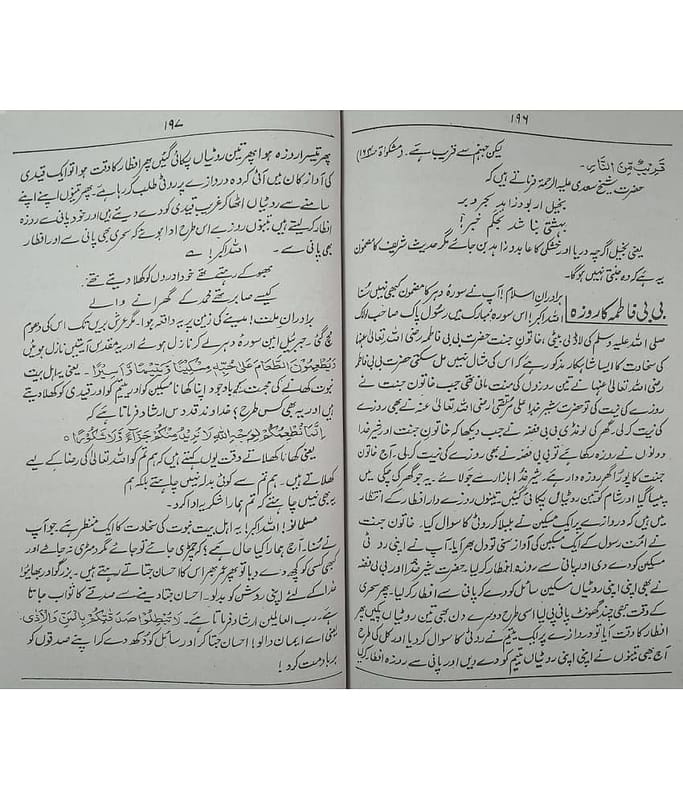 ۱۹۶
قَرِیْبٌ مِّنَ النَّاسِ۔ لیکن جہنم سے قریب ہے۔ (مشکوٰۃ
حضرت شیخ سعدی علیہ الرحمۃ فرماتے ہیں کہ
بخیل ار بود زاہد بحر و بر
بہشتی نباشد بحکم خبر!
یعنی بخیل اگرچہ دریا اور خشکی کا عابد و زاہد بن جائے مگر حدیث شریف کا مضمون
یہ ہے کہ وہ جنتی نہیں ہوگا۔
بی بی فاطمہ کا روزہ
برادران اسلام! آپ نے سورۂ دہر کا مضمون کبھی نہیں سنا
اللہ اکبر! اس سورۂ مبارک میں رسول پاک صاحب لولاک
صلی اللہ علیہ وسلم کی لاڈلی بیٹی، خاتون جنت حضرت بی بی فاطمہ رضی اللہ تعالیٰ عنہا
کی سخاوت کا ایسا شاہکار مذکور ہے کہ اس کی مثال نہیں مل سکتی حضرت بی بی فاطمہ
رضی اللہ تعالیٰ عنہا نے تین روزوں کی منت مانی تھی جب خاتون جنت نے
روزے کی نیت کی تو حضرت شیر خدا علی مرتضیٰ رضی اللہ تعالیٰ عنہ نے بھی روزے
کی نیت کرلی۔ گھر کی لونڈی بی بی فضہ نے جب دیکھا کہ خاتون جنت اور شیر خدا
دونوں نے روزہ رکھا ہے تو بی بی فضہ نے بھی روزے کی نیت کرلی۔ آج خاتون
جنت کا پورا گھر روزہ دار ہے۔ شیر خدا بازار سے جو لائے۔ یہ جو گھر کی چکی میں
پیسا گیا اور شام کو تین روٹیاں پکائی گئیں۔ تینوں روزے دار افطار کے انتظار
میں ہیں کہ دروازے پر ایک مسکین نے بلبلا کر روٹی کا سوال کیا۔ خاتون جنت
نے امت رسول کے ایک مسکین کی آواز سنی تو دل بھر آیا۔ آپ نے اپنی روٹی
مسکین کو دے دی اور پانی سے روزہ افطار کرلیا۔ حضرت شیر خدا اور بی بی فضہ
نے بھی اپنی اپنی روٹیاں مسکین سائل کو دے کر پانی سے افطار کرلیا۔ پھر سحری
کے وقت بھی چند گھونٹ پانی پی لیا اسی طرح دوسرے دن بھی تین روٹیاں پکیں پھر
افطار کا وقت آیا تو دروازے پر ایک یتیم نے روٹی کا سوال کر دیا اور کل کی طرح
آج بھی تینوں نے اپنی اپنی روٹیاں یتیم کو دے دیں اور پانی سے روزہ افطار کرلیا
۱۹۷
پھر تیسرا روزہ ہوا پھر تین روٹیاں پکائی گئیں پھر افطار کا وقت ہوا تو ایک قیدی
کی آواز کان میں آئی کہ وہ دروازے پر روٹی طلب کر رہا ہے۔ پھر تینوں اپنے اپنے
سامنے سے روٹیاں اٹھا کر غریب قیدی کو دے دیتے ہیں اور خود پانی سے روزہ
افطار کرلیتے ہیں تینوں روزے اس طرح ادا ہوئے کہ سحری بھی پانی سے اور افطار
بھی پانی سے۔ اللہ اکبر!
بھوکے رہتے تھے خود اوروں کو کھلا دیتے تھے
کیسے صابر تھے محمد کے گھرانے والے
برادران ملت! مدینے کی زمین پر یہ واقعہ ہوا۔ مگر عرش بریں تک اس کی دھوم
مچ گئی۔ جبرئیل امین سورۂ دہر لے کر نازل ہوئے اور یہ مقدس آیتیں نازل ہوئیں
وَیُطْعِمُوْنَ الطَّعَامَ عَلٰی حُبِّهٖ مِسْكِیْنًا وَّیَتِیْمًا وَّاَسِیْرًا۔ یعنی یہ اہل بیت
نبوت کھانے کی محبت کے باوجود اپنا کھانا مسکین کو اور یتیم کو اور قیدی کو کھلا دیتے
ہیں اور یہ بھی کس طرح؟ خداوند قدوس ارشاد فرماتا ہے کہ
اِنَّمَا نُطْعِمُكُمْ لِوَجْهِ اللّٰهِ لَا نُرِیْدُ مِنْكُمْ جَزَآءً وَّلَا شُكُوْرًا ○
یعنی کھانا کھلاتے وقت یوں کہتے ہیں کہ ہم تم کو اللہ تعالیٰ کی رضا کے لیے
کھلاتے ہیں۔ ہم تم سے کوئی بدلہ نہیں چاہتے بلکہ ہم
یہ بھی نہیں چاہتے کہ تم ہمارا شکریہ ادا کرو۔
مسلمانو! اللہ اکبر! یہ اہل بیت نبوت کی سخاوت کا ایک منظر ہے جو آپ
نے سنا۔ آج ہمارا کیا حال ہے؟ کہ چمڑی جائے تو جائے مگر دمڑی نہ جائے اور
کبھی کسی کو کچھ دے دیا تو پھر عمر بھر اس کا احسان جتاتے رہتے ہیں۔ بزرگو اور بھائیو!
خدا کے لئے اپنی روشن کو بدلو۔ احسان جتا دینے سے صدقے کا ثواب جاتا
ہے۔ رب العالمین ارشاد فرماتا ہے۔ لَا تُبْطِلُوْا صَدَقٰتِكُمْ بِالْمَنِّ وَالْاَذٰی۔
یعنی اے ایمان والو! احسان جتا کر اور سائل کو دکھ دے کر اپنے صدقوں کو
برباد مت کرو!